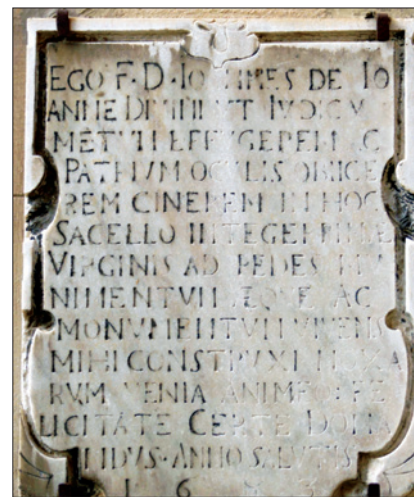 EGO F. D. IOANNES DE IO
ANNE DIVINUM VT IVDICIV
METVII EFFVGEREM AC
PATRIVM OCVLIS OBIICE
REM CINEREM IN HOC
SACELLO INTEGERRIMAE
VIRGINIS AD PEDES MV
NIMENTVM AC
MONVMENTVM VIVENS
MIHI CONSTRVXI NOXA
RVM VENIA ANIMAE FE
LICITATE CERTE DONA
IDVS ANNO SALVTIS
1 6